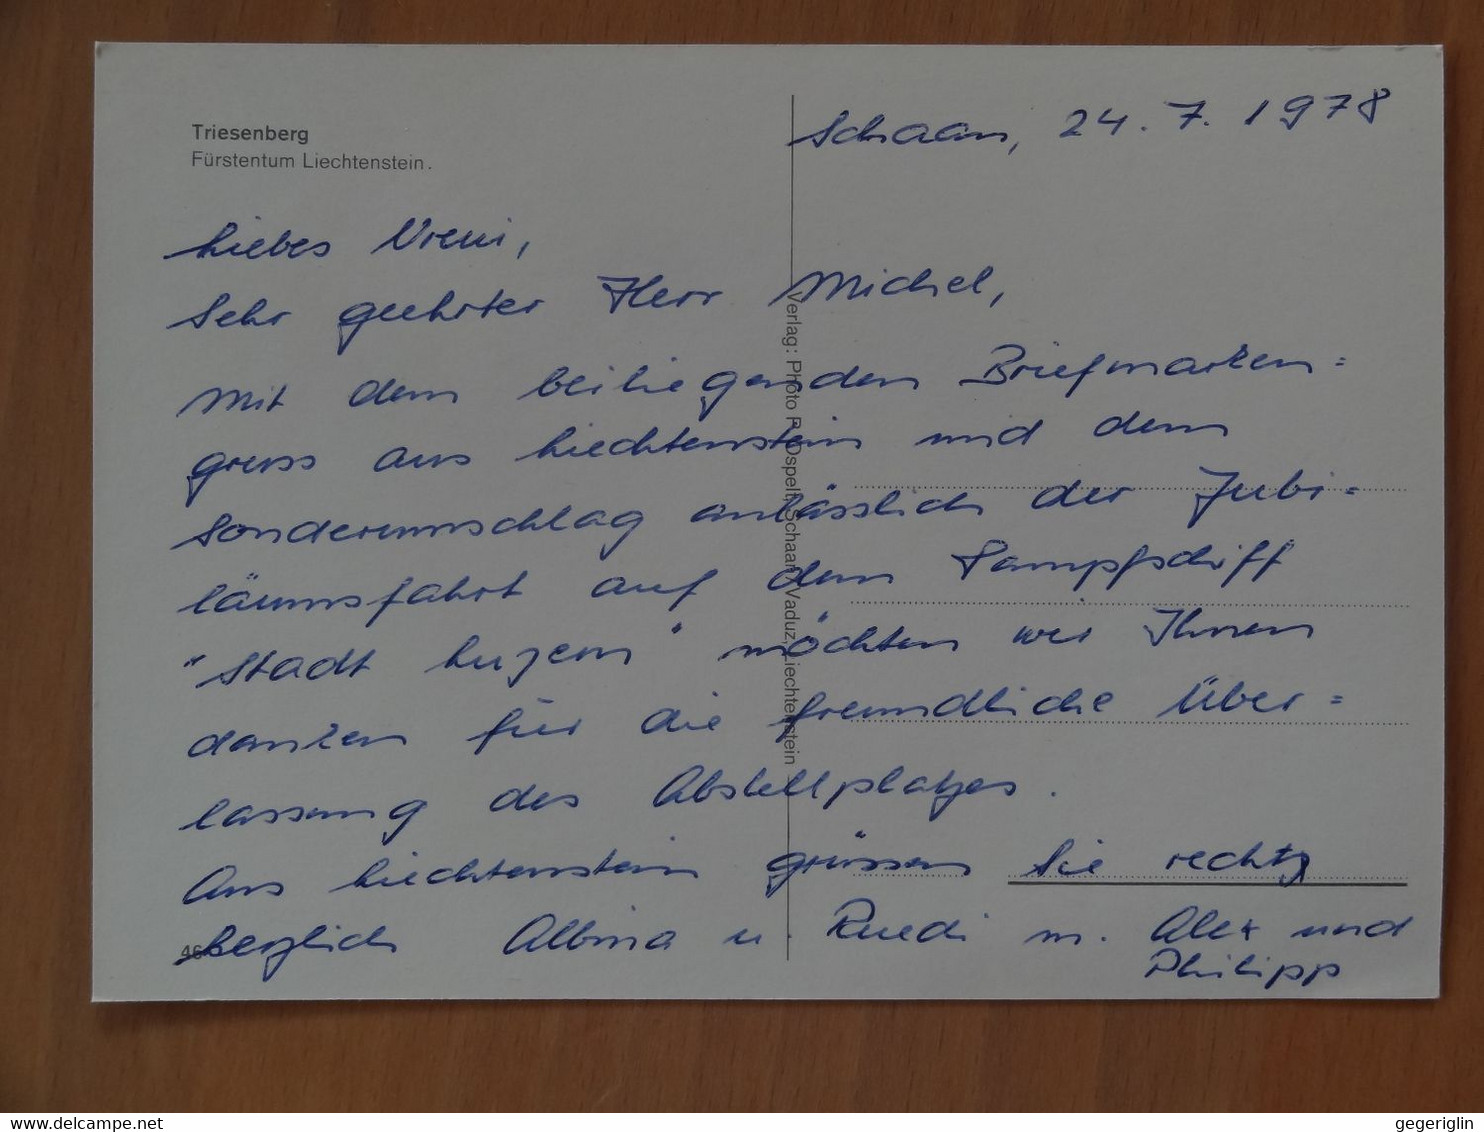 Triesenberg
Fürstentum Liechtenstein.
Schaan, 24. 7. 1978
Liebes Vreni,
Sehr geehrter Herr Michel,
Mit dem beiliegenden Briefmarken=
gruss aus Liechtenstein und dem
Sonderumschlag anlässlich der Jubi=
läumsfahrt auf dem Dampfschiff
"Stadt Luzern" möchten wir Ihnen
danken für die freundliche Über=
lassung des Abstellplatzes.
Aus Liechtenstein grüssen Sie recht
herzlich Albina u. Ruedi m. Alex und
Philipp
Verlag: Photo R. Ospelt, Schaan/Vaduz, Liechtenstein
delcampe.net
gegeriglin